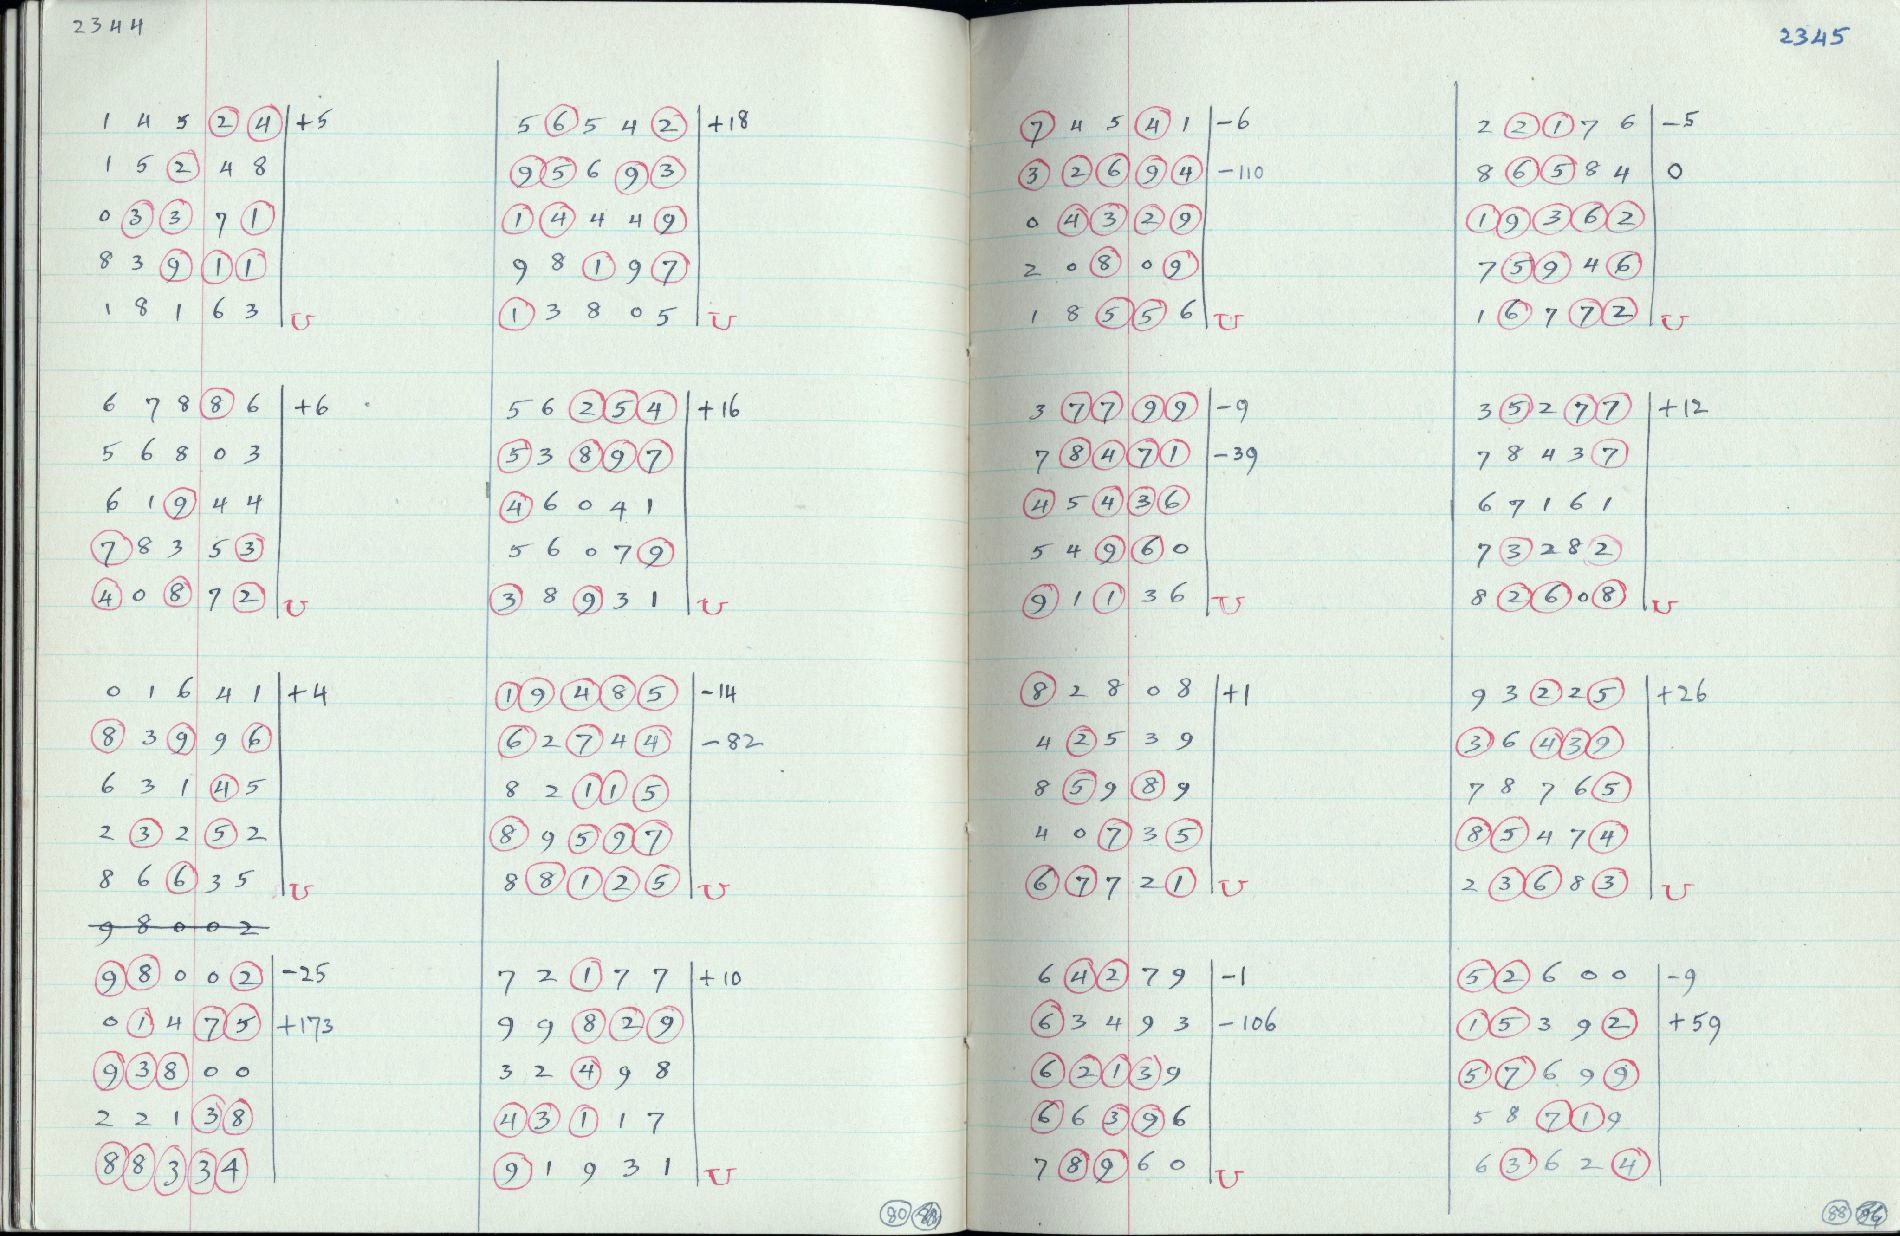 2344
1 4 5 2 4 +5
1 5 2 4 8
0 3 3 7 1
8 3 9 1 1
1 8 1 6 3 U
6 7 8 8 6 +6
5 6 8 0 3
6 1 9 4 4
7 8 3 5 3
4 0 8 7 2 U
0 1 6 4 1 +4
8 3 9 9 6
6 3 1 4 5
2 3 2 5 2
8 6 6 3 5 U
9 8 0 0 2
9 8 0 0 2 -25
0 1 4 7 5 +173
9 3 8 0 0
2 2 1 3 8
8 8 3 3 4
5 6 5 4 2 +18
9 5 6 9 3
1 4 4 4 9
9 8 1 9 7
1 3 8 0 5 U
5 6 2 5 4 +16
5 3 8 9 7
4 6 0 4 1
5 6 0 7 9
3 8 9 3 1 U
1 9 4 8 5 -14
6 2 7 4 4 -82
8 2 1 1 5
8 9 5 9 7
8 8 1 2 5 U
7 2 1 7 7 +10
9 9 8 2 9
3 2 4 9 8
4 3 1 1 7
9 1 9 3 1 U
80
2345
7 4 5 4 1 -6
3 2 6 9 4 -110
0 4 3 2 9
2 0 8 0 9
1 8 5 5 6 U
3 7 7 9 9 -9
7 8 4 7 1 -39
4 5 4 3 6
5 4 9 6 0
9 1 1 3 6 U
8 2 8 0 8 +1
4 2 5 3 9
8 5 9 8 9
4 0 7 3 5
6 7 7 2 1 U
6 4 2 7 9 -1
6 3 4 9 3 -106
6 2 1 3 9
6 6 3 9 6
7 8 9 6 0 U
2 2 1 7 6 -5
8 6 5 8 4 0
1 9 3 6 2
7 5 9 4 6
1 6 7 7 2 U
3 5 2 7 7 +12
7 8 4 3 7
6 7 1 6 1
7 3 2 8 2
8 2 6 0 8 U
9 3 2 2 5 +26
3 6 4 3 9
7 8 7 6 5
8 5 4 7 4
2 3 6 8 3 U
5 2 6 0 0 -9
1 5 3 9 2 +59
5 7 6 9 9
5 8 7 1 9
6 3 6 2 4
88